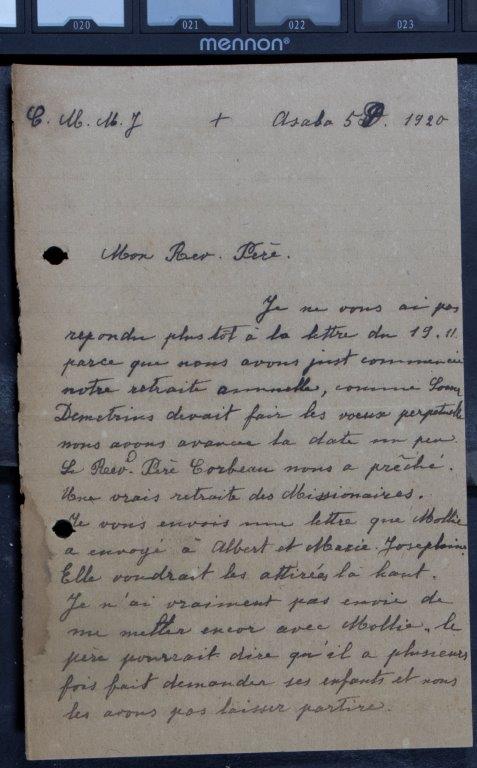 020 021 022 023
mennon®
C. M. M. J + Asaba 5 1920
Mon Rev. Père.
Je ne vous ai pas
repondu plus tôt à la lettre du 19. 11
parce que nous avons just commencie
notre retraite annuelle, comme Soeur
Demetrius devait fair les voeux perpetuelle
nous avons avancee la date un peu.
Le Revd. Pèrè Corbeau nous a prêché.
Une vrais retraite des Missionaires.
Je vous envois une lettre que Mollie
a envoyé à Albert et Marie Josephine
Elle voudrait les attirés là haut.
Je n'ai vraiment pas envie de
me metter encor avec Mollie, le
père pourrait dire qu'il a plusieurs
fois fait demander ses enfants et nous
les avons pas laisser partire.